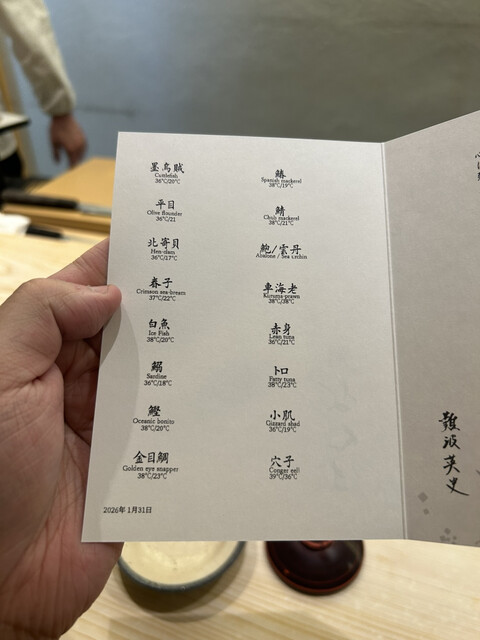 墨烏賊
Cuttlefish
36℃/20℃
平目
Olive flounder
36℃/21
北寄貝
Hen-clam
36℃/17℃
春子
Crimson sea-bream
37℃/22℃
白魚
Ice Fish
38℃/20℃
鰯
Sardine
36℃/18℃
鰹
Oceanic bonito
38℃/20℃
金目鯛
Golden eye snapper
38℃/23℃
鰆
Spanish mackerel
38℃/19℃
鯖
Chub mackerel
38℃/21℃
鮑/雲丹
Abalone / Sea urchin
車海老
Kuruma-prawn
38℃/38℃
赤身
Lean tuna
36℃/21℃
トロ
Fatty tuna
38℃/23℃
小肌
Gizzard shad
36℃/19℃
穴子
Conger eel
39℃/36℃
2026年 1月31日
難波英史